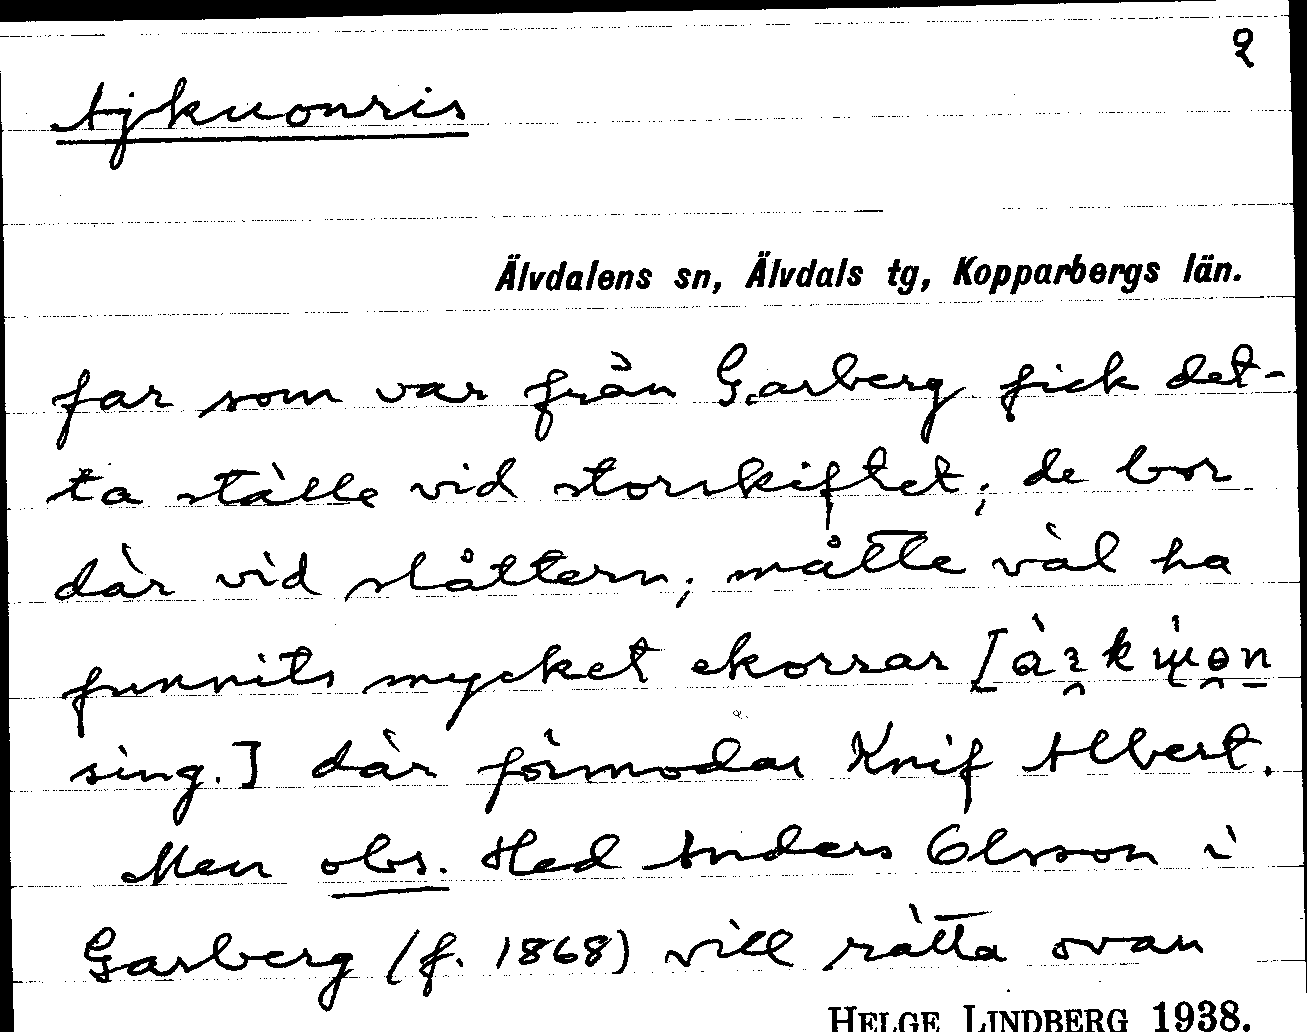 2
Ajkuonris
Älvdalens sn, Älvdals tg, Kopparbergs län.
far som var från Garberg fick det-
ta ställe vid storskiftet; de bor
där vid slåttern; måtte väl ha
funnits mycket ekorrar
sing.] där förmodar Knif Albert.
Men obs. Hed Anders Olsson i
Garberg (f. 1868) vill rätta ovan
HELGE LINDBERG 1938.